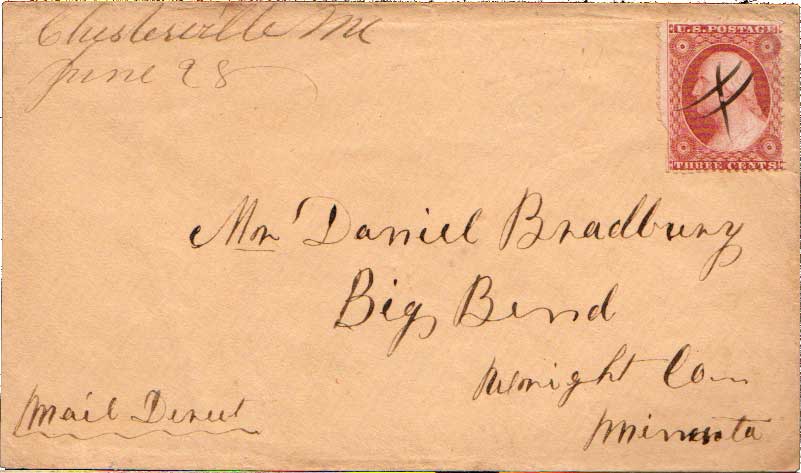 Chesterville Me
June 28
U.S. POSTAGE
THREE CENTS
Mr Daniel Bradbury
Big Bend
Wright Co
Minnesota
Mail Direct